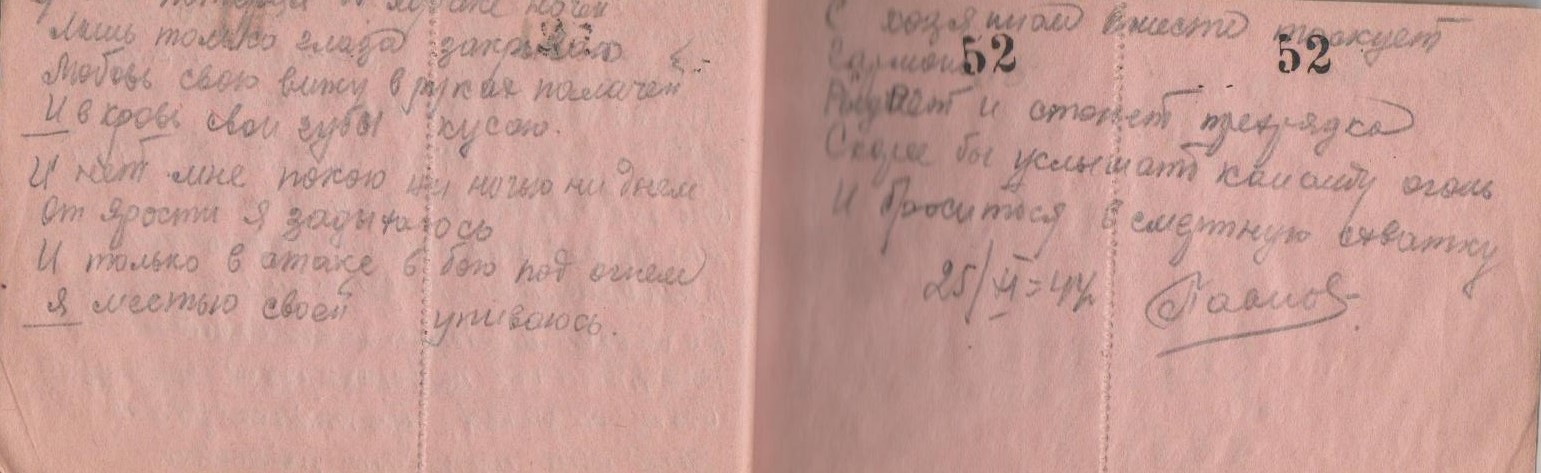 ночей
Лишь только глаза закрываю
Любовь свою вижу в руках палачей
И в кровь свои губы кусаю.
И нет мне покою ни ночью ни днем
От ярости я задыхаюсь
И только в атаке в бою под огнем
Я местью своей упиваюсь.
С хозяином вместе тоскует
52 52
и стонет трехрядка
бы услышать команду огонь
И броситься в смертную схватку
25/